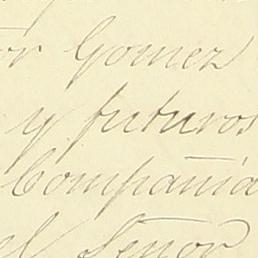 or Gomez
y futuros
Compañia
el Señor